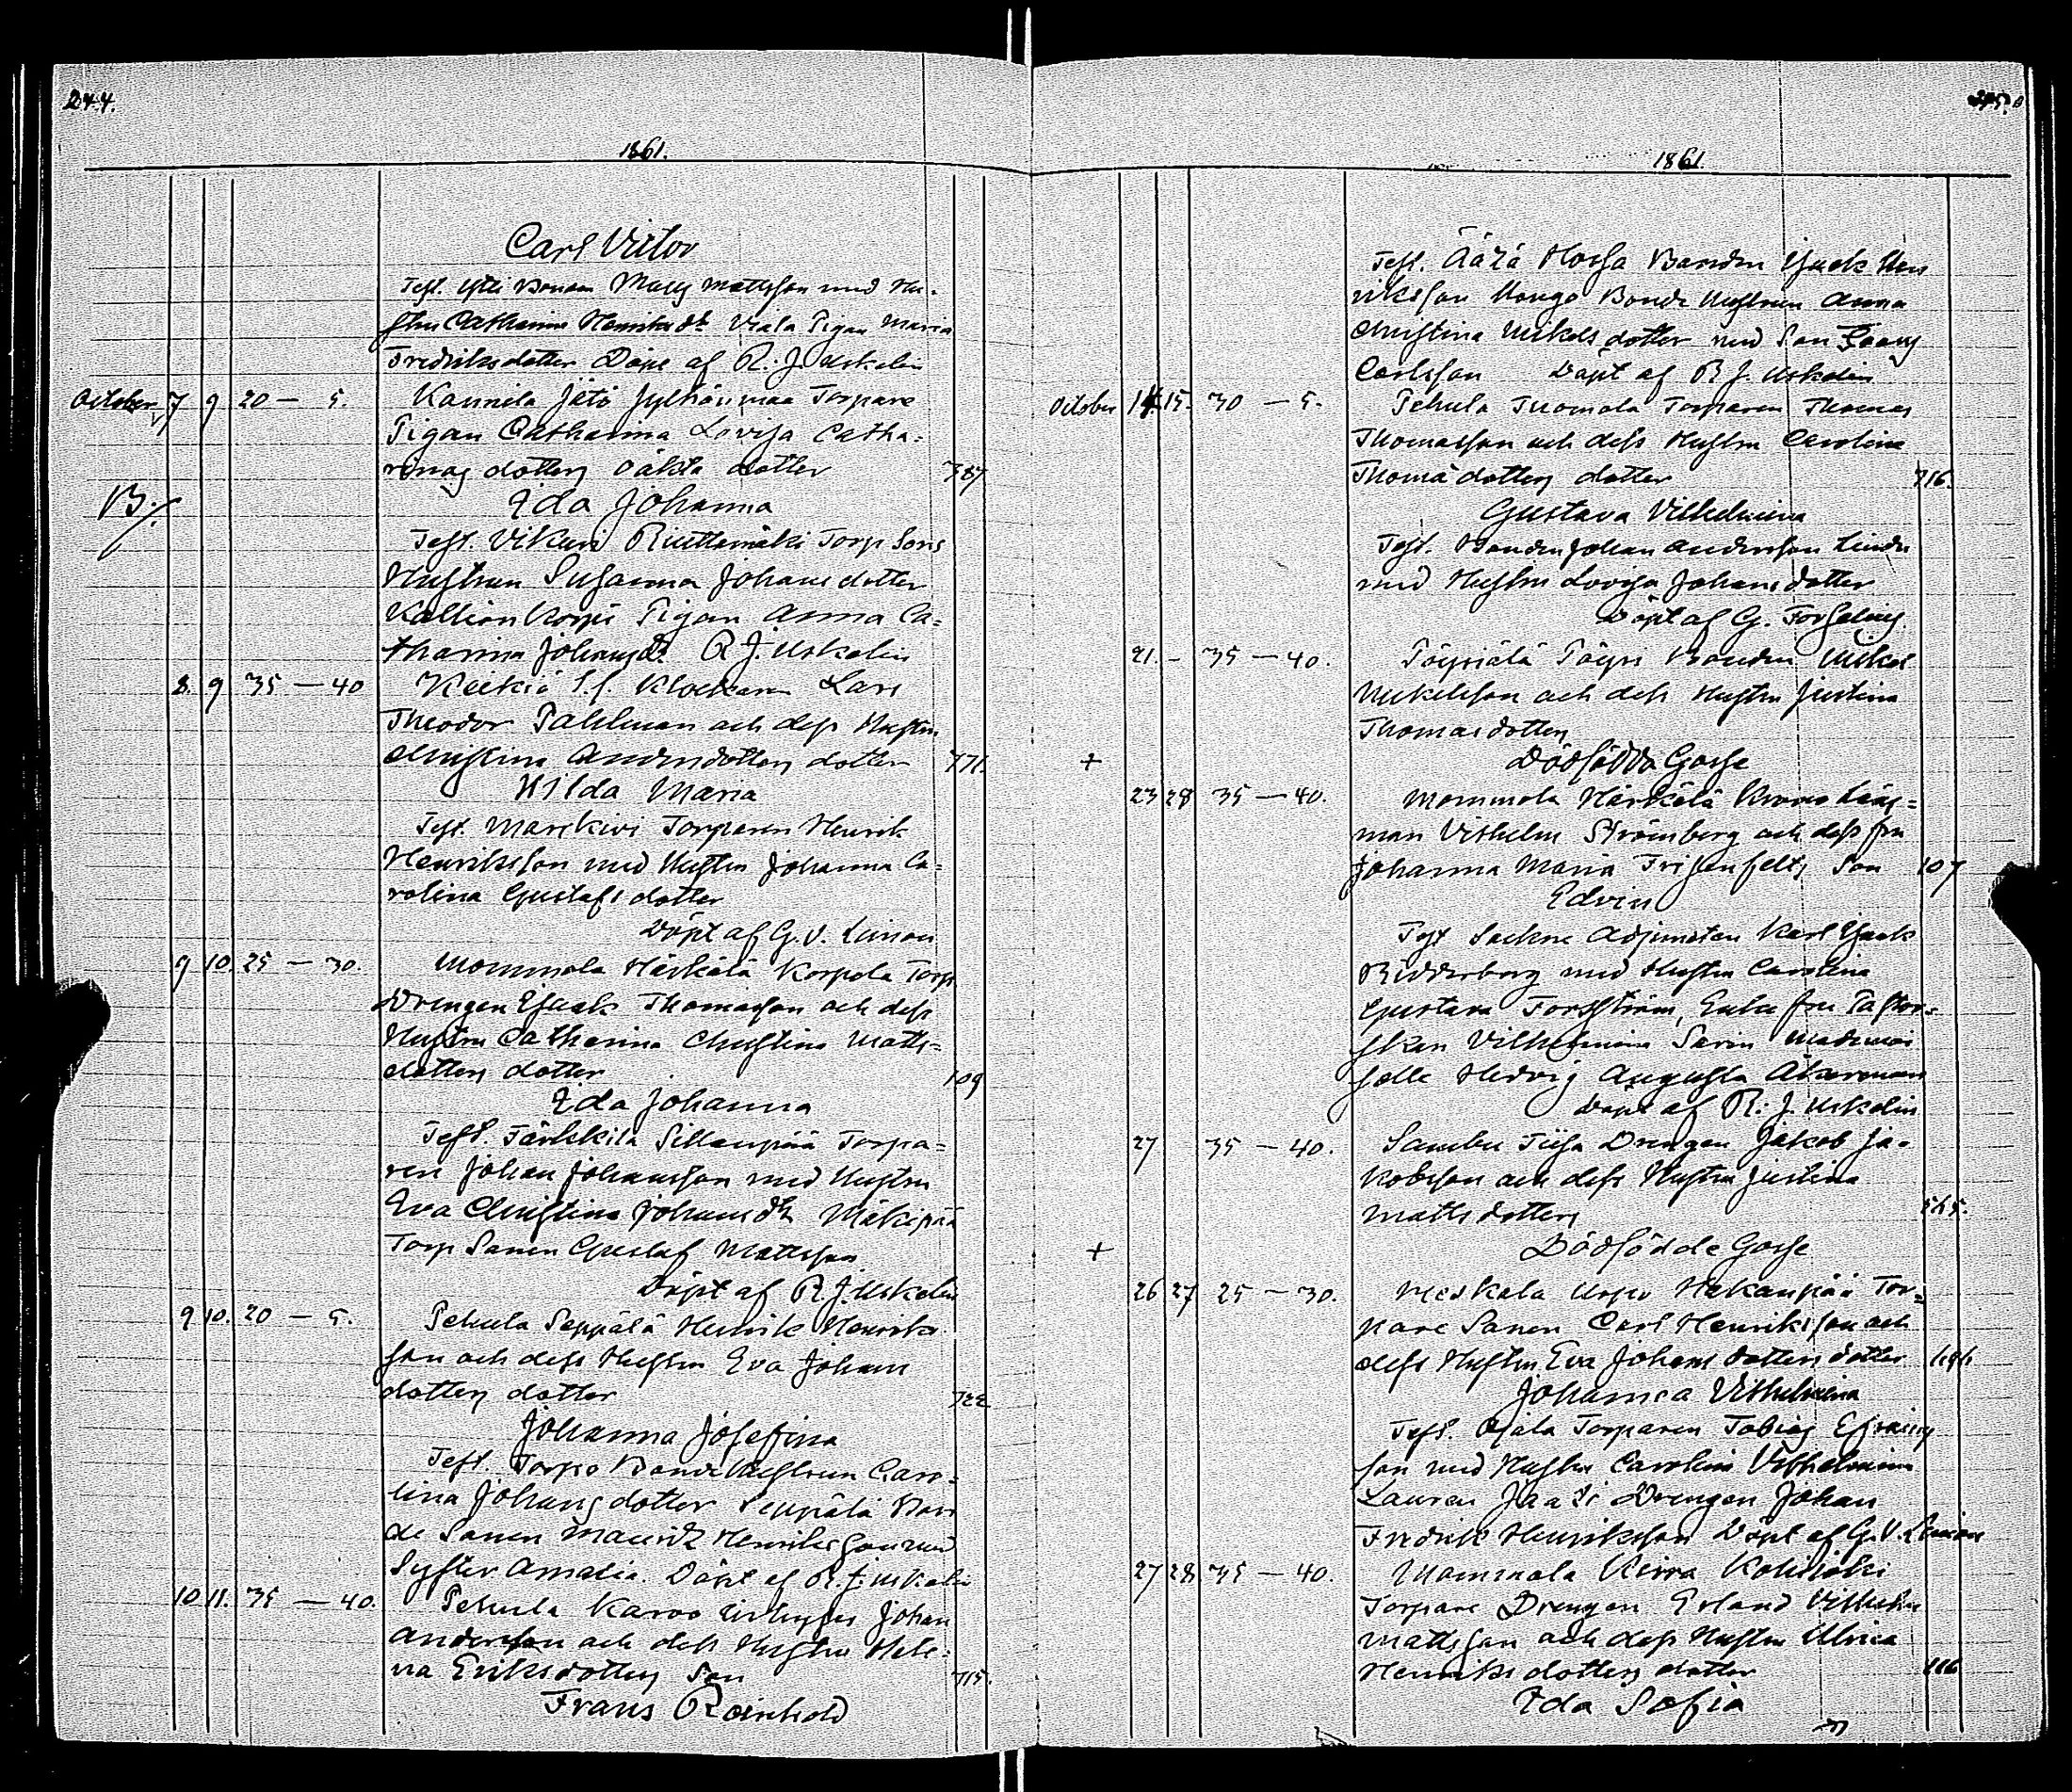 244.
1861.
Carl Victor
Test. Bonden Matts Mattsson med Hu-
stru Catharina Henriksdr Viala Pigan Maria
Fredriksdotter Döpt af R. J. Uskelin
October 7 9 20 — 5. Kaunila Jätö Jylhänmaa Torpare
Pigan Catharina Lovisa Catha-
rinas dotters oäkta dotter 387
B./. Ida Johanna
Test. Vikuri Riuttamäki Torp Sons
Hustrun Susanna Johansdotter
Kallion Korpi Pigan Anna Ca-
tharina Johansdr R J. Uskelin
8. 9 35 — 40 Keikiö Klockaren Lars
Theodor Pahlman och dess Hustru
Christina Andersdotters dotter 771.
Hilda Maria
Test. Marckivi Torparen Henrik
Henriksson med Hustru Johanna Ca-
rolina Gustafsdotter
Döpt af G. V. Limon
9 10. 25 — 30. Mommola Härkälä Korpela Torp.
Drengen Isaak Thomasson och dess
Hustru Catharina Christina Matts-
dotters dotter 109
Ida Johanna
Test. Järlskilä Sillanpää Torpa-
ren Johan Johansson med Hustru
Eva Christina Johansdr Mäkipää
Torp Sonen Gustaf Mattsson
Döpt af R. J. Uskelin
9 10. 20 — 5. Pehula Seppälä Henrik Henriks-
son och dess Hustru Eva Johans
dotters dotter 722
Johanna Josefina
Test. Torpo Bonde Hustrun Caro-
lina Johansdotter Seppälä Bon
de Sonen Mauritz Henriksson med
Syster Amalia. Döpt af R. J. Uskelin
10 11. 35 — 40. Pehula Karoo Inhyses Johan
Andersson och dess Hustru Hele-
na Eriksdotters Son 715.
Frans Reinhold
245.
1861.
Test. Äätä Hossa Bonden Isaak Hen
riksson Bonde Hustrun Anna
Christina Mikelsdotter med Son
Carlsson Döpt af R J. Uskelin
October 14 15. 30 — 5. Pehula Tuomola Torparen Thomas
Thomasson och dess Hustru Carolina
Thomädotters dotter 716.
Gustava Vilhelmina
Test. Bonden Johan Andersson
med Hustru Lovisa Johansdotter
Döpt af G. Forselius
21. - 35 — 40. Pöypiälä Pöyri Bonden Mikel
Mikelsson och dess Hustru Justina
Thomasdotters
+ Dödfödda Gosse
23 28 35 — 40. Mommola Härkälä Krono Läns-
man Vilhelm Strömberg och dess fru
Johanna Maria Frisenfelts Son 107
Edvin
Test Sockne Adjuncten Karl Isaak
Ridderborg med Hustru Carolina
Gustava Forsström, Enke fru Pastor-
skan Vilhelmina Sarin Mademoi
selle Hedvig Augusta Åkerman
Döpt af R. J. Uskelin
27 35 — 40. Sambu Tiisa Drengen Jakob Ja-
kobsson och dess Hustru Justina
Mattsdotters 565.
+ Dödfödde Gosse
26 27 25 — 30. Meskala Uppo Hakanpää Tor-
pare Sonen Carl Henriksson och
dess Hustru Eva Johansdotters dotter 696
Johanna Vilhelmina
Test. Ojala Torparen Tobias Efraims
son med Hustru Carolina Vilhelmina
Lauren Jaati Drengen Johan
Fredrik Henriksson Döpt af G. V. Limon
27 28. 35 — 40. Mommola Kirra Kokinoki
Torpare Drengen Erland Vilhelm
Mattsson och dess Hustru Ulrica
Henriksdotters dotter 116
Ida Sofia